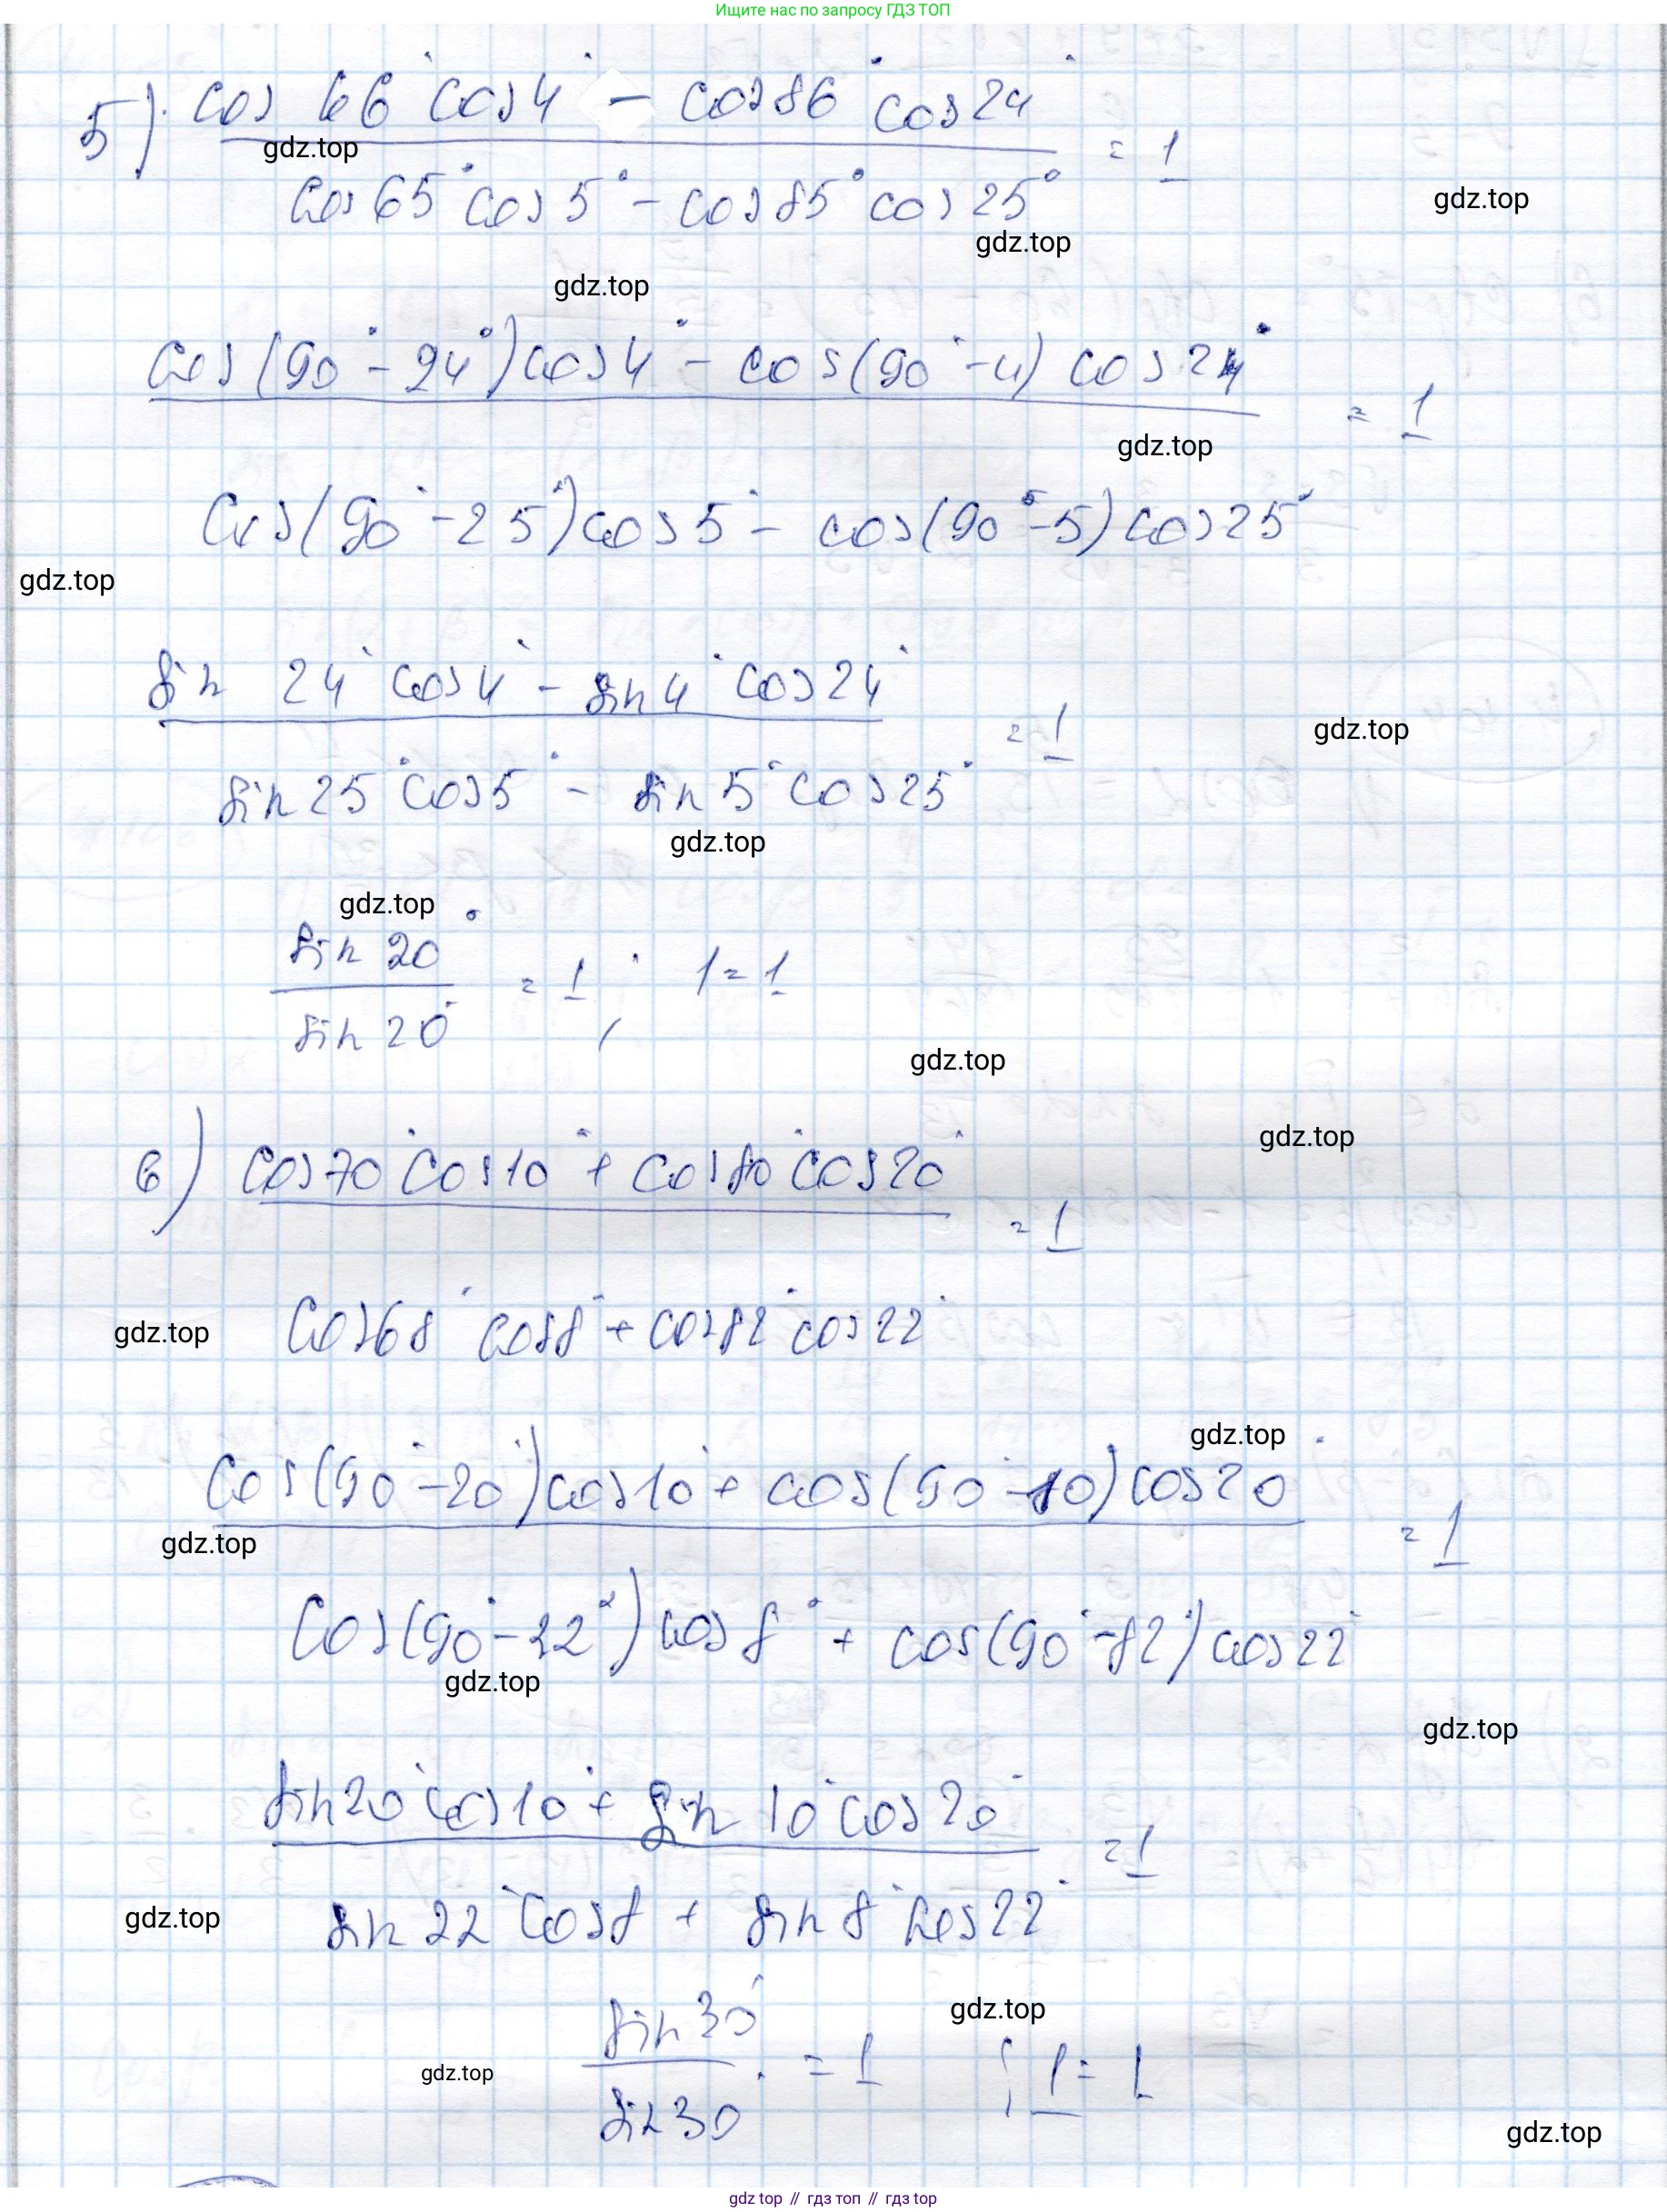 Ищите нас по запросу ГДЗ ТОП
5) cos 66° cos 4° - cos 86° cos 24°
gdz.top
= 1
cos 65° cos 5° - cos 85° cos 25°
gdz.top
gdz.top
gdz.top
cos(90° - 24°) cos 4° - cos(90° - 4) cos 24°
= 1
gdz.top
cos(90° - 25°) cos 5° - cos(90° - 5) cos 25°
gdz.top
sin 24° cos 4° - sin 4° cos 24°
= 1
gdz.top
sin 25° cos 5° - sin 5° cos 25°
gdz.top
gdz.top
sin 20°
= 1 ; 1 = 1
sin 20°
gdz.top
gdz.top
6) cos 70° cos 10° + cos 80° cos 20°
= 1
cos 68° cos 8° + cos 82° cos 22°
gdz.top
gdz.top
cos(90° - 20°) cos 10° + cos(90° - 10) cos 20°
= 1
gdz.top
cos(90° - 22°) cos 8° + cos(90° - 82°) cos 22°
gdz.top
gdz.top
sin 20° cos 10° + sin 10° cos 20°
= 1
sin 22° cos 8 + sin 8° cos 22°
gdz.top
sin 30°
gdz.top
= 1 ; 1 = 1
gdz.top
sin 30°
gdz.top
gdz top // гдз топ // gdz top